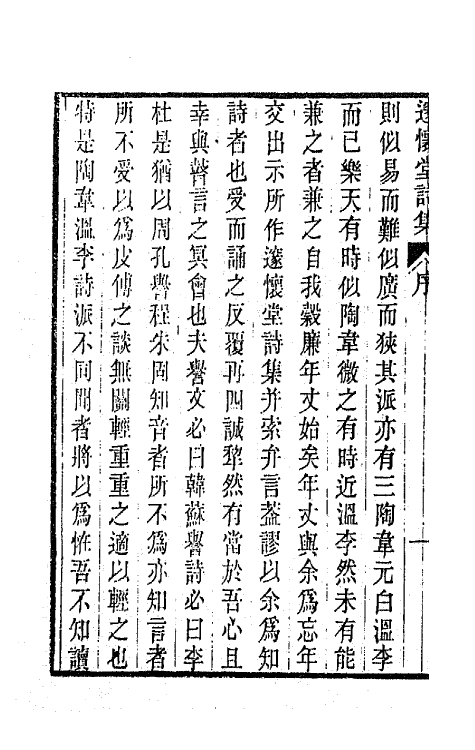 邃懷堂詩集 序 一
則似易而難似廣而狹其派亦有三陶韋元白溫李
而已樂天有時似陶韋微之有時近溫李然未有能
兼之者兼之自我穀廉年丈始矣年丈與余爲忘年
交出示所作邃懷堂詩集并索弁言蓋謬以余爲知
詩者也受而誦之反覆再四誠犂然有當於吾心且
幸與瞽言之冥會也夫譽文必曰韓蘇譽詩必曰李
杜是猶以周孔譽程朱固知音者所不爲亦知言者
所不受以爲皮傅之談無關輕重重之適以輕之也
特是陶韋溫李詩派不同聞者將以爲怪吾不知讀